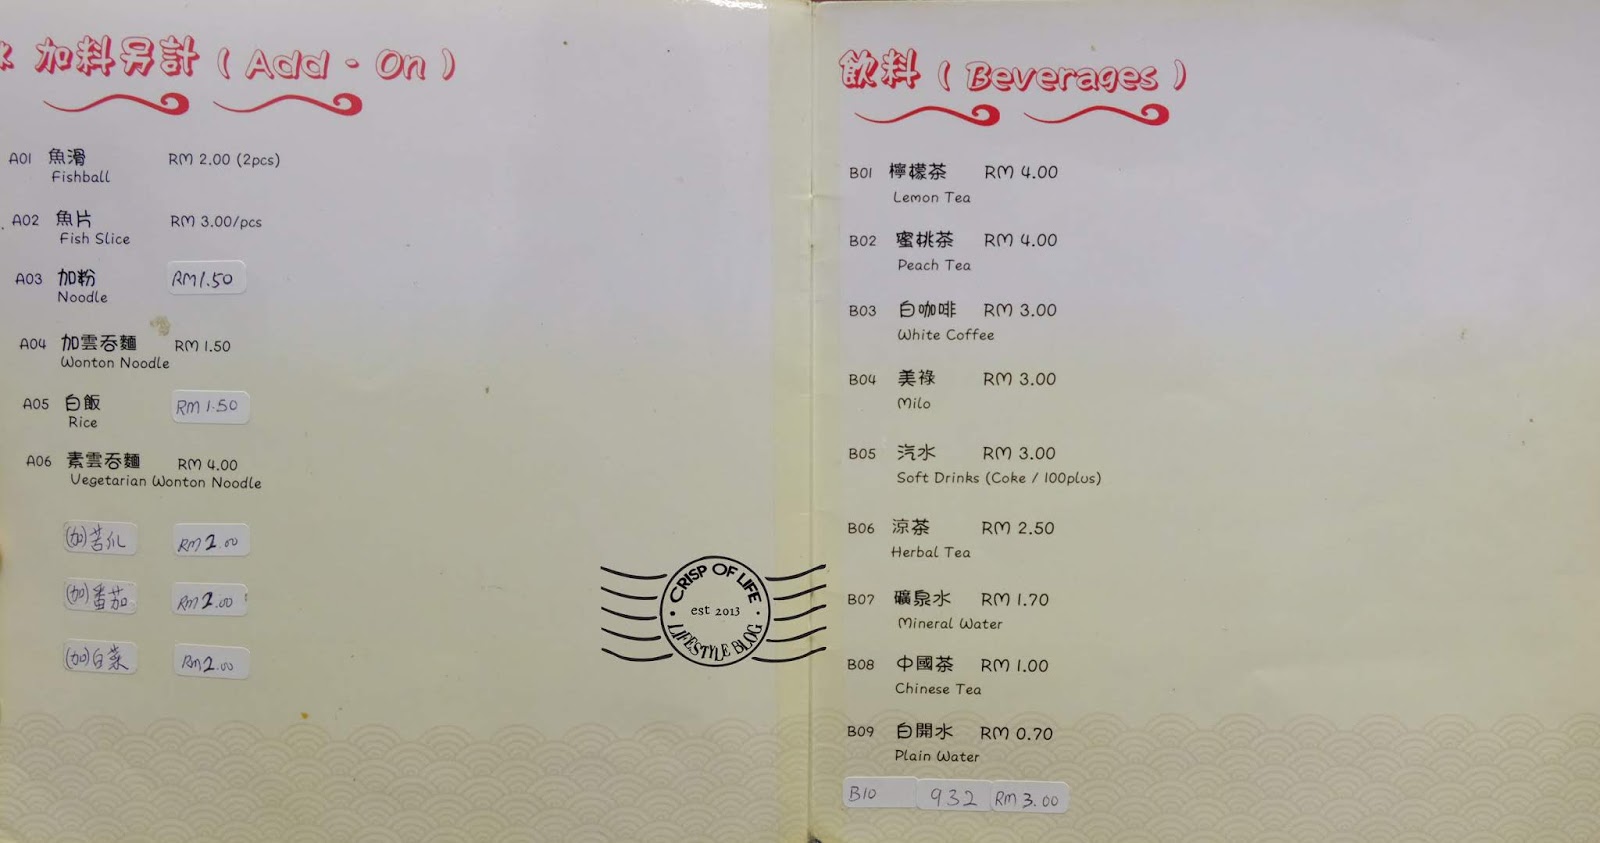 加料另計 ( Add - On )
A01 魚滑 RM 2.00 (2pcs)
Fishball
A02 魚片 RM 3.00/pcs
Fish Slice
A03 加粉 RM1.50
Noodle
A04 加雲吞麵 RM 1.50
Wonton Noodle
A05 白飯 RM 1.50
Rice
A06 素雲吞麵 RM 4.00
Vegetarian Wonton Noodle
(加)苦瓜 RM 2.00
(加)番茄 RM 2.00
(加)白菜 RM 2.00
飲料 ( Beverages )
B01 檸檬茶 RM 4.00
Lemon Tea
B02 蜜桃茶 RM 4.00
Peach Tea
B03 白咖啡 RM 3.00
White Coffee
B04 美祿 RM 3.00
Milo
B05 汽水 RM 3.00
Soft Drinks (Coke / 100plus)
B06 涼茶 RM 2.50
Herbal Tea
B07 礦泉水 RM 1.70
Mineral Water
B08 中國茶 RM 1.00
Chinese Tea
B09 白開水 RM 0.70
Plain Water
B10 932 RM 3.00
CRISP OF LIFE
est 2013
LIFESTYLE BLOG